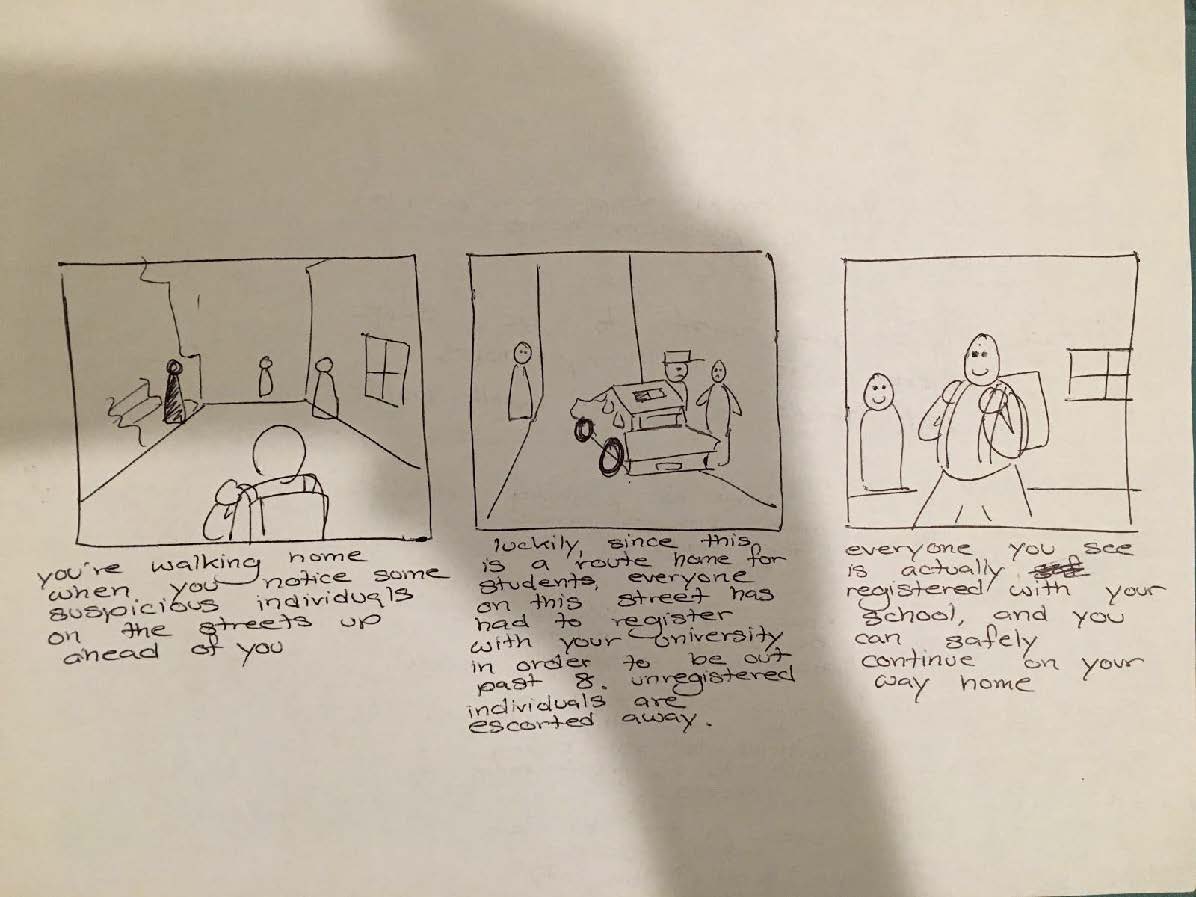 you're walking home
when you notice some
suspicious individuals
on the streets up
ahead of you
luckily, since this
is a route home for
students, everyone
on this street has
had to register
with your university
in order to be out
past 8. unregistered
individuals are
escorted away.
everyone you see
is actually
registered with your
school, and you
can safely
continue on your
way home